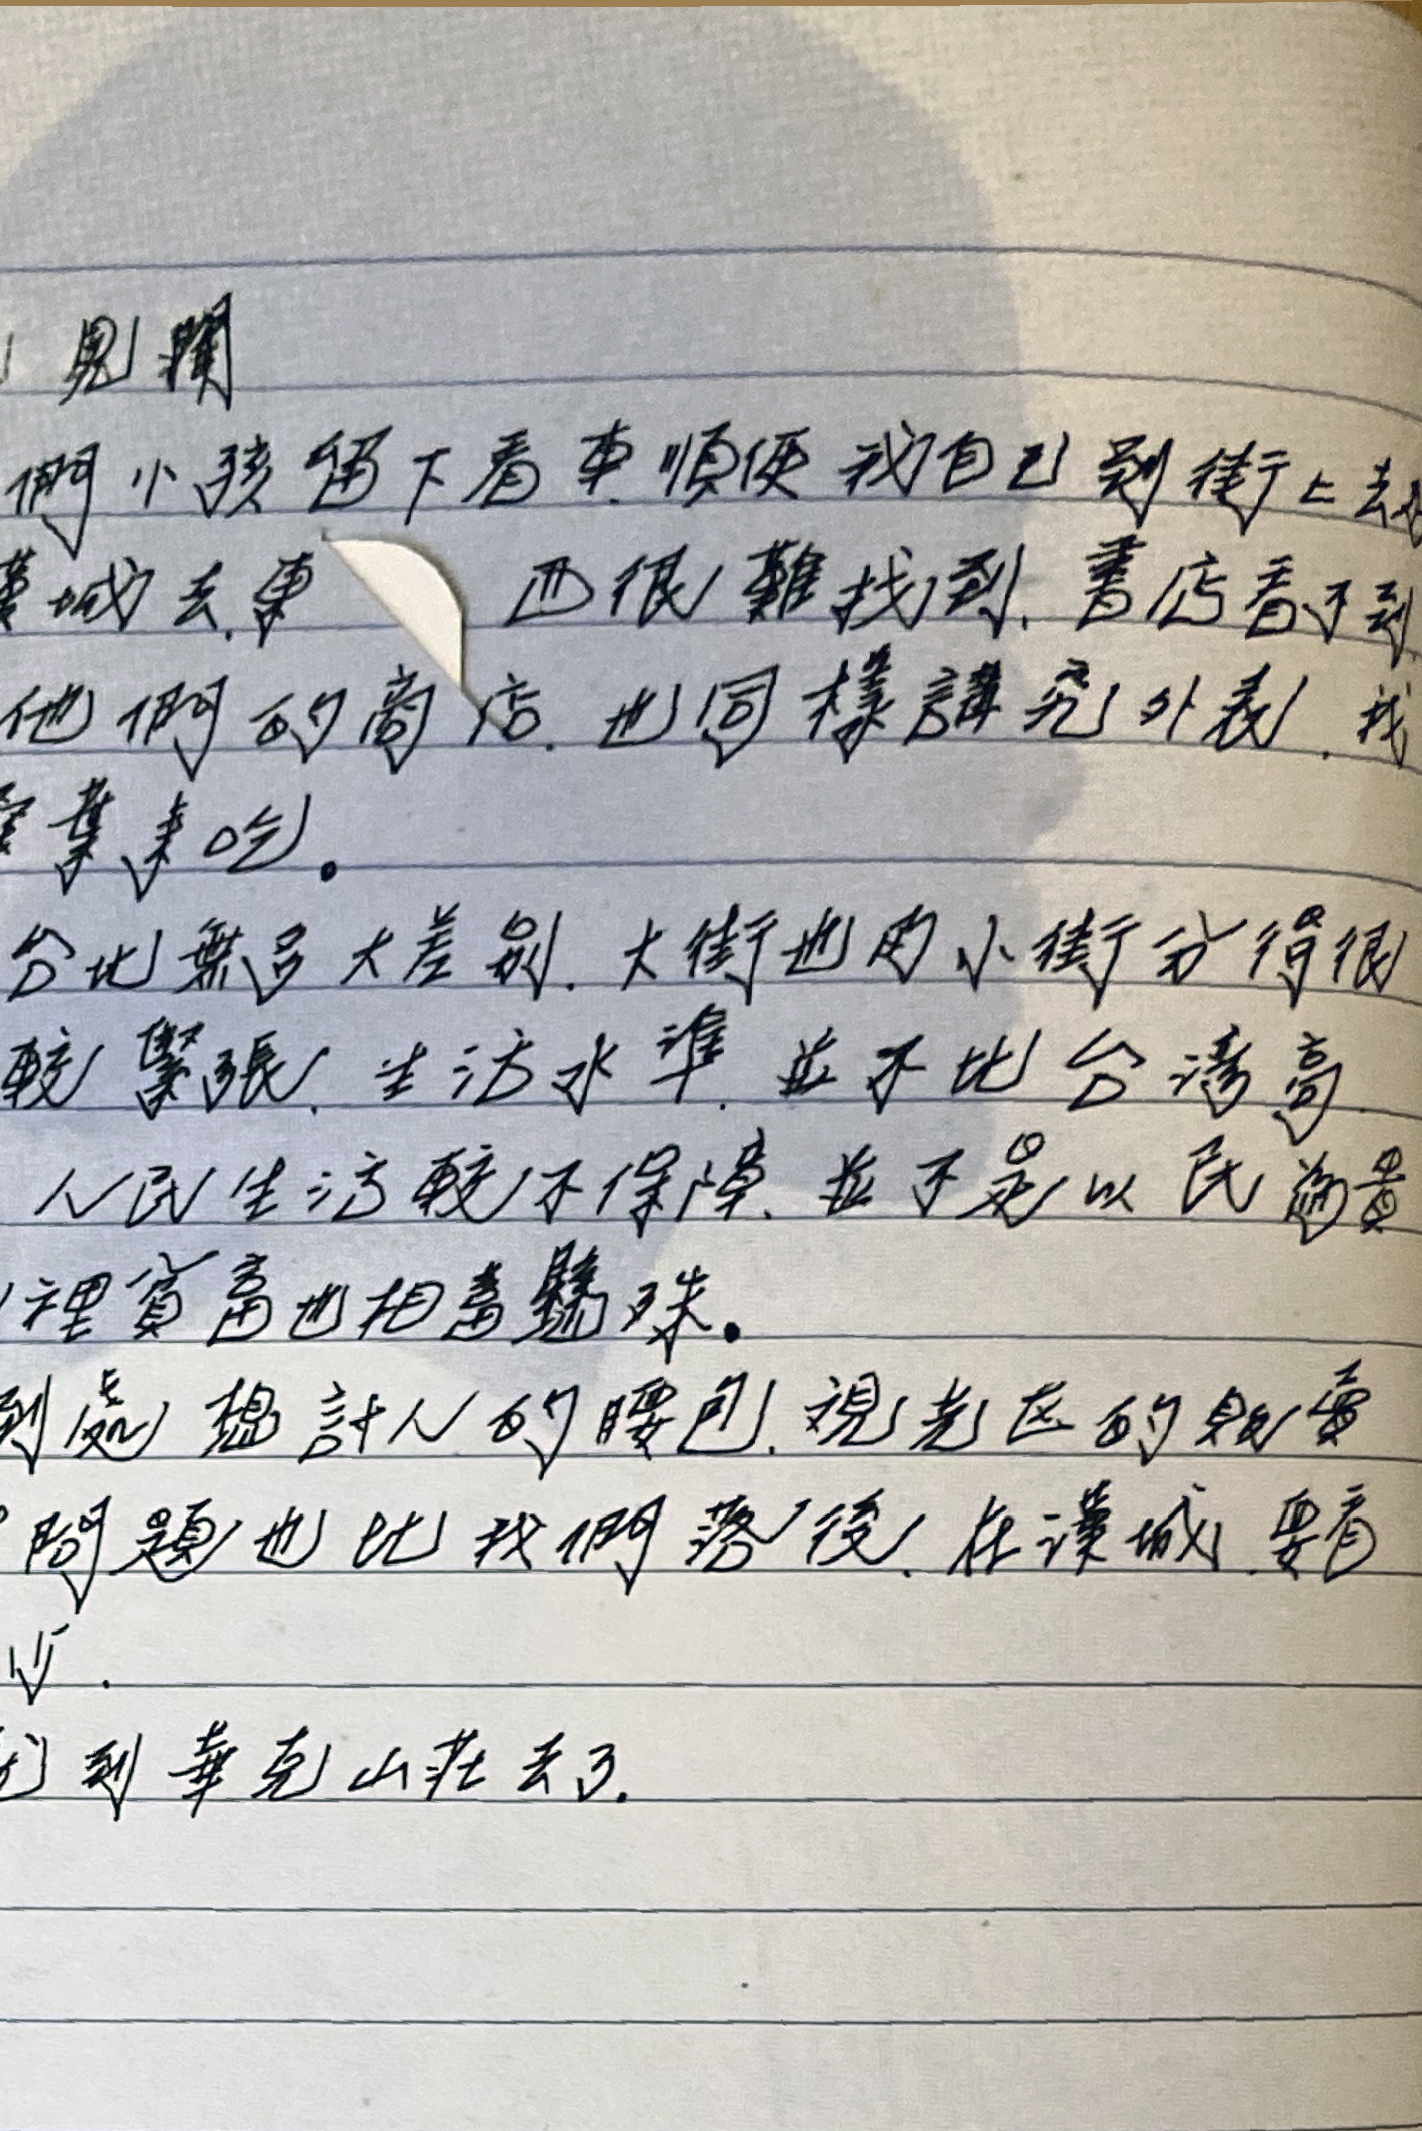 見聞
們小孩留下看車.順便我自己到街上去
漢城去.東西很難找到.書店看不到
他們的商店.也同樣講究外表.我
葉來吃。
台比無多大差別.大街也的小街分得很
較緊張.生活水準.並不比台湾高.
人民生活較不保障.並不是以民為貴
裡貧富也相當懸殊。
到處想討人的腰包.視光区的販賣
問題也比我們落後.在漢城.要看
少.
到華克山莊去了.